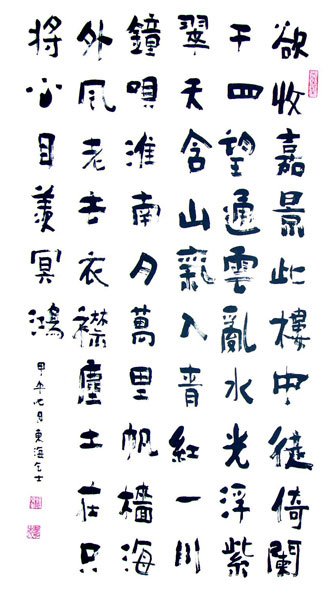 欲收嘉景此樓中徙倚闌
干四望通雲亂水光浮紫
翠天含山氣入青紅一川
鐘唄淮南月萬里帆檣海
外風老去衣襟塵土在只
將心目羨冥鴻
甲午七月東海士